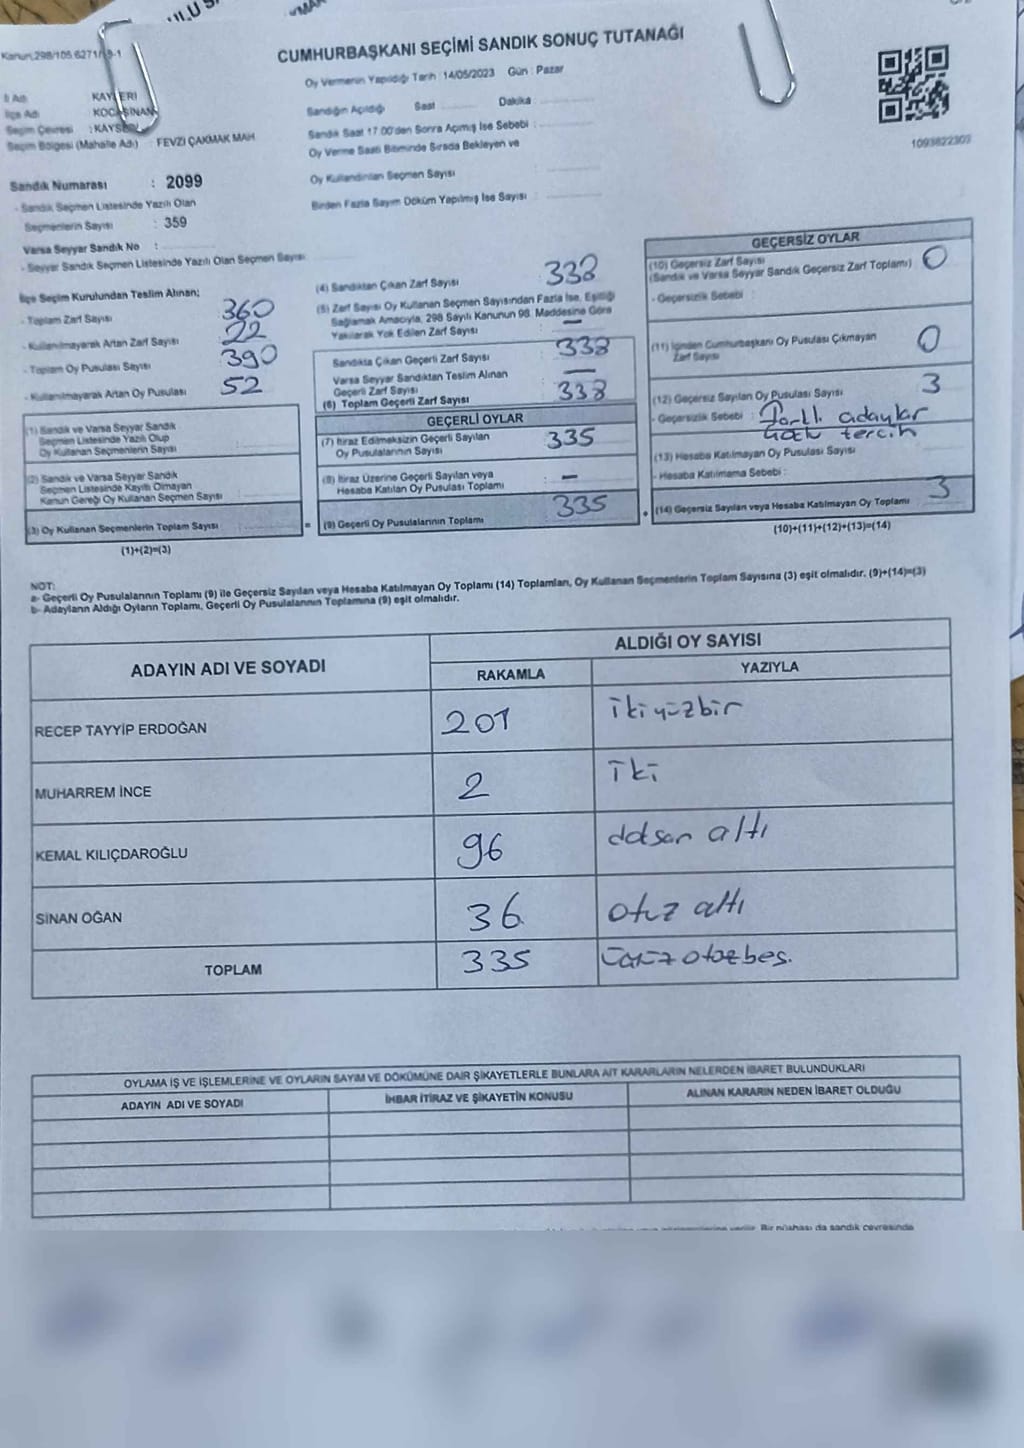 CUMHURBAŞKANI SEÇİMİ SANDIK SONUÇ TUTANAĞI
Oy Vermenin Yapıldığı Tarih : 14/05/2023 Gün : Pazar
İl Adı KAYSERİ
İlçe Adı KOCASİNAN
Seçim Çevresi : KAYSERİ
Seçim Bölgesi (Mahalle Adı) : FEVZİ ÇAKMAK MAH
Sandık Numarası : 2099
- Sandık Seçmen Listesinde Yazılı Olan
Seçmenlerin Sayısı : 359
Varsa Seyyar Sandık No :
- Seyyar Sandık Seçmen Listesinde Yazılı Olan Seçmen Sayısı
Sandığın Açıldığı Saat Dakika
Sandık Saat 17.00'den Sonra Açımış İse Sebebi :
Oy Verme Saati Bitiminde Sırada Bekleyen ve
Oy Kullandırılan Seçmen Sayısı
Birden Fazla Sayım Döküm Yapılmış İse Sayısı :
1093822303
İlçe Seçim Kurulundan Teslim Alınan;
- Toplam Zarf Sayısı 360
- Kullanılmayarak Artan Zarf Sayısı 22
- Toplam Oy Pusulası Sayısı 390
- Kullanılmayarak Artan Oy Pusulası 52
(1) Sandık ve Varsa Seyyar Sandık
Seçmen Listesinde Yazılı Olup
Oy Kullanan Seçmenlerin Sayısı
(2) Sandık ve Varsa Seyyar Sandık
Seçmen Listesinde Kayıtlı Olmayan
Kanun Gereği Oy Kullanan Seçmen Sayısı
(3) Oy Kullanan Seçmenlerin Toplam Sayısı =
(1)+(2)=(3)
(4) Sandıktan Çıkan Zarf Sayısı 338
(5) Zarf Sayısı Oy Kullanan Seçmen Sayısından Fazla İse, Eşitliği
Sağlamak Amacıyla, 298 Sayılı Kanunun 98. Maddesine Göre
Yakılarak Yok Edilen Zarf Sayısı —
Sandıkta Çıkan Geçerli Zarf Sayısı 338
Varsa Seyyar Sandıktan Teslim Alınan
Geçerli Zarf Sayısı —
(6) Toplam Geçerli Zarf Sayısı 338
GEÇERLİ OYLAR
(7) İtiraz Edilmeksizin Geçerli Sayılan
Oy Pusulalarının Sayısı 335
(8) İtiraz Üzerine Geçerli Sayılan veya
Hesaba Katılan Oy Pusulası Toplamı : —
(9) Geçerli Oy Pusulalarının Toplamı 335
GEÇERSİZ OYLAR
(10) Geçersiz Zarf Sayısı
(Sandık ve Varsa Seyyar Sandık Geçersiz Zarf Toplamı) 0
- Geçersizlik Sebebi :
(11) İçinden Cumhurbaşkanı Oy Pusulası Çıkmayan
Zarf Sayısı 0
(12) Geçersiz Sayılan Oy Pusulası Sayısı 3
- Geçersizlik Sebebi : Farklı adaylar
tercih
(13) Hesaba Katılmayan Oy Pusulası Sayısı
- Hesaba Katılmama Sebebi :
(14) Geçersiz Sayılan veya Hesaba Katılmayan Oy Toplamı 3
(10)+(11)+(12)+(13)=(14)
NOT:
a- Geçerli Oy Pusulalarının Toplamı (9) ile Geçersiz Sayılan veya Hesaba Katılmayan Oy Toplamı (14) Toplamları, Oy Kullanan Seçmenlerin Toplam Sayısına (3) eşit olmalıdır. (9)+(14)=(3)
b- Adayların Aldığı Oyların Toplamı, Geçerli Oy Pusulalarının Toplamına (9) eşit olmalıdır.
ADAYIN ADI VE SOYADI ALDIĞI OY SAYISI
RAKAMLA YAZIYLA
RECEP TAYYİP ERDOĞAN 201 ikiyüzbir
MUHARREM İNCE 2 iki
KEMAL KILIÇDAROĞLU 96 doksan altı
SİNAN OĞAN 36 otuz altı
TOPLAM 335 üçyüz otuzbeş.
OYLAMA İŞ VE İŞLEMLERİNE VE OYLARIN SAYIM VE DÖKÜMÜNE DAİR ŞİKAYETLERLE BUNLARA AİT KARARLARIN NELERDEN İBARET BULUNDUKLARI
ADAYIN ADI VE SOYADI İHBAR İTİRAZ VE ŞİKAYETİN KONUSU ALINAN KARARIN NEDEN İBARET OLDUĞU
Bir nüshası da sandık çevresinde